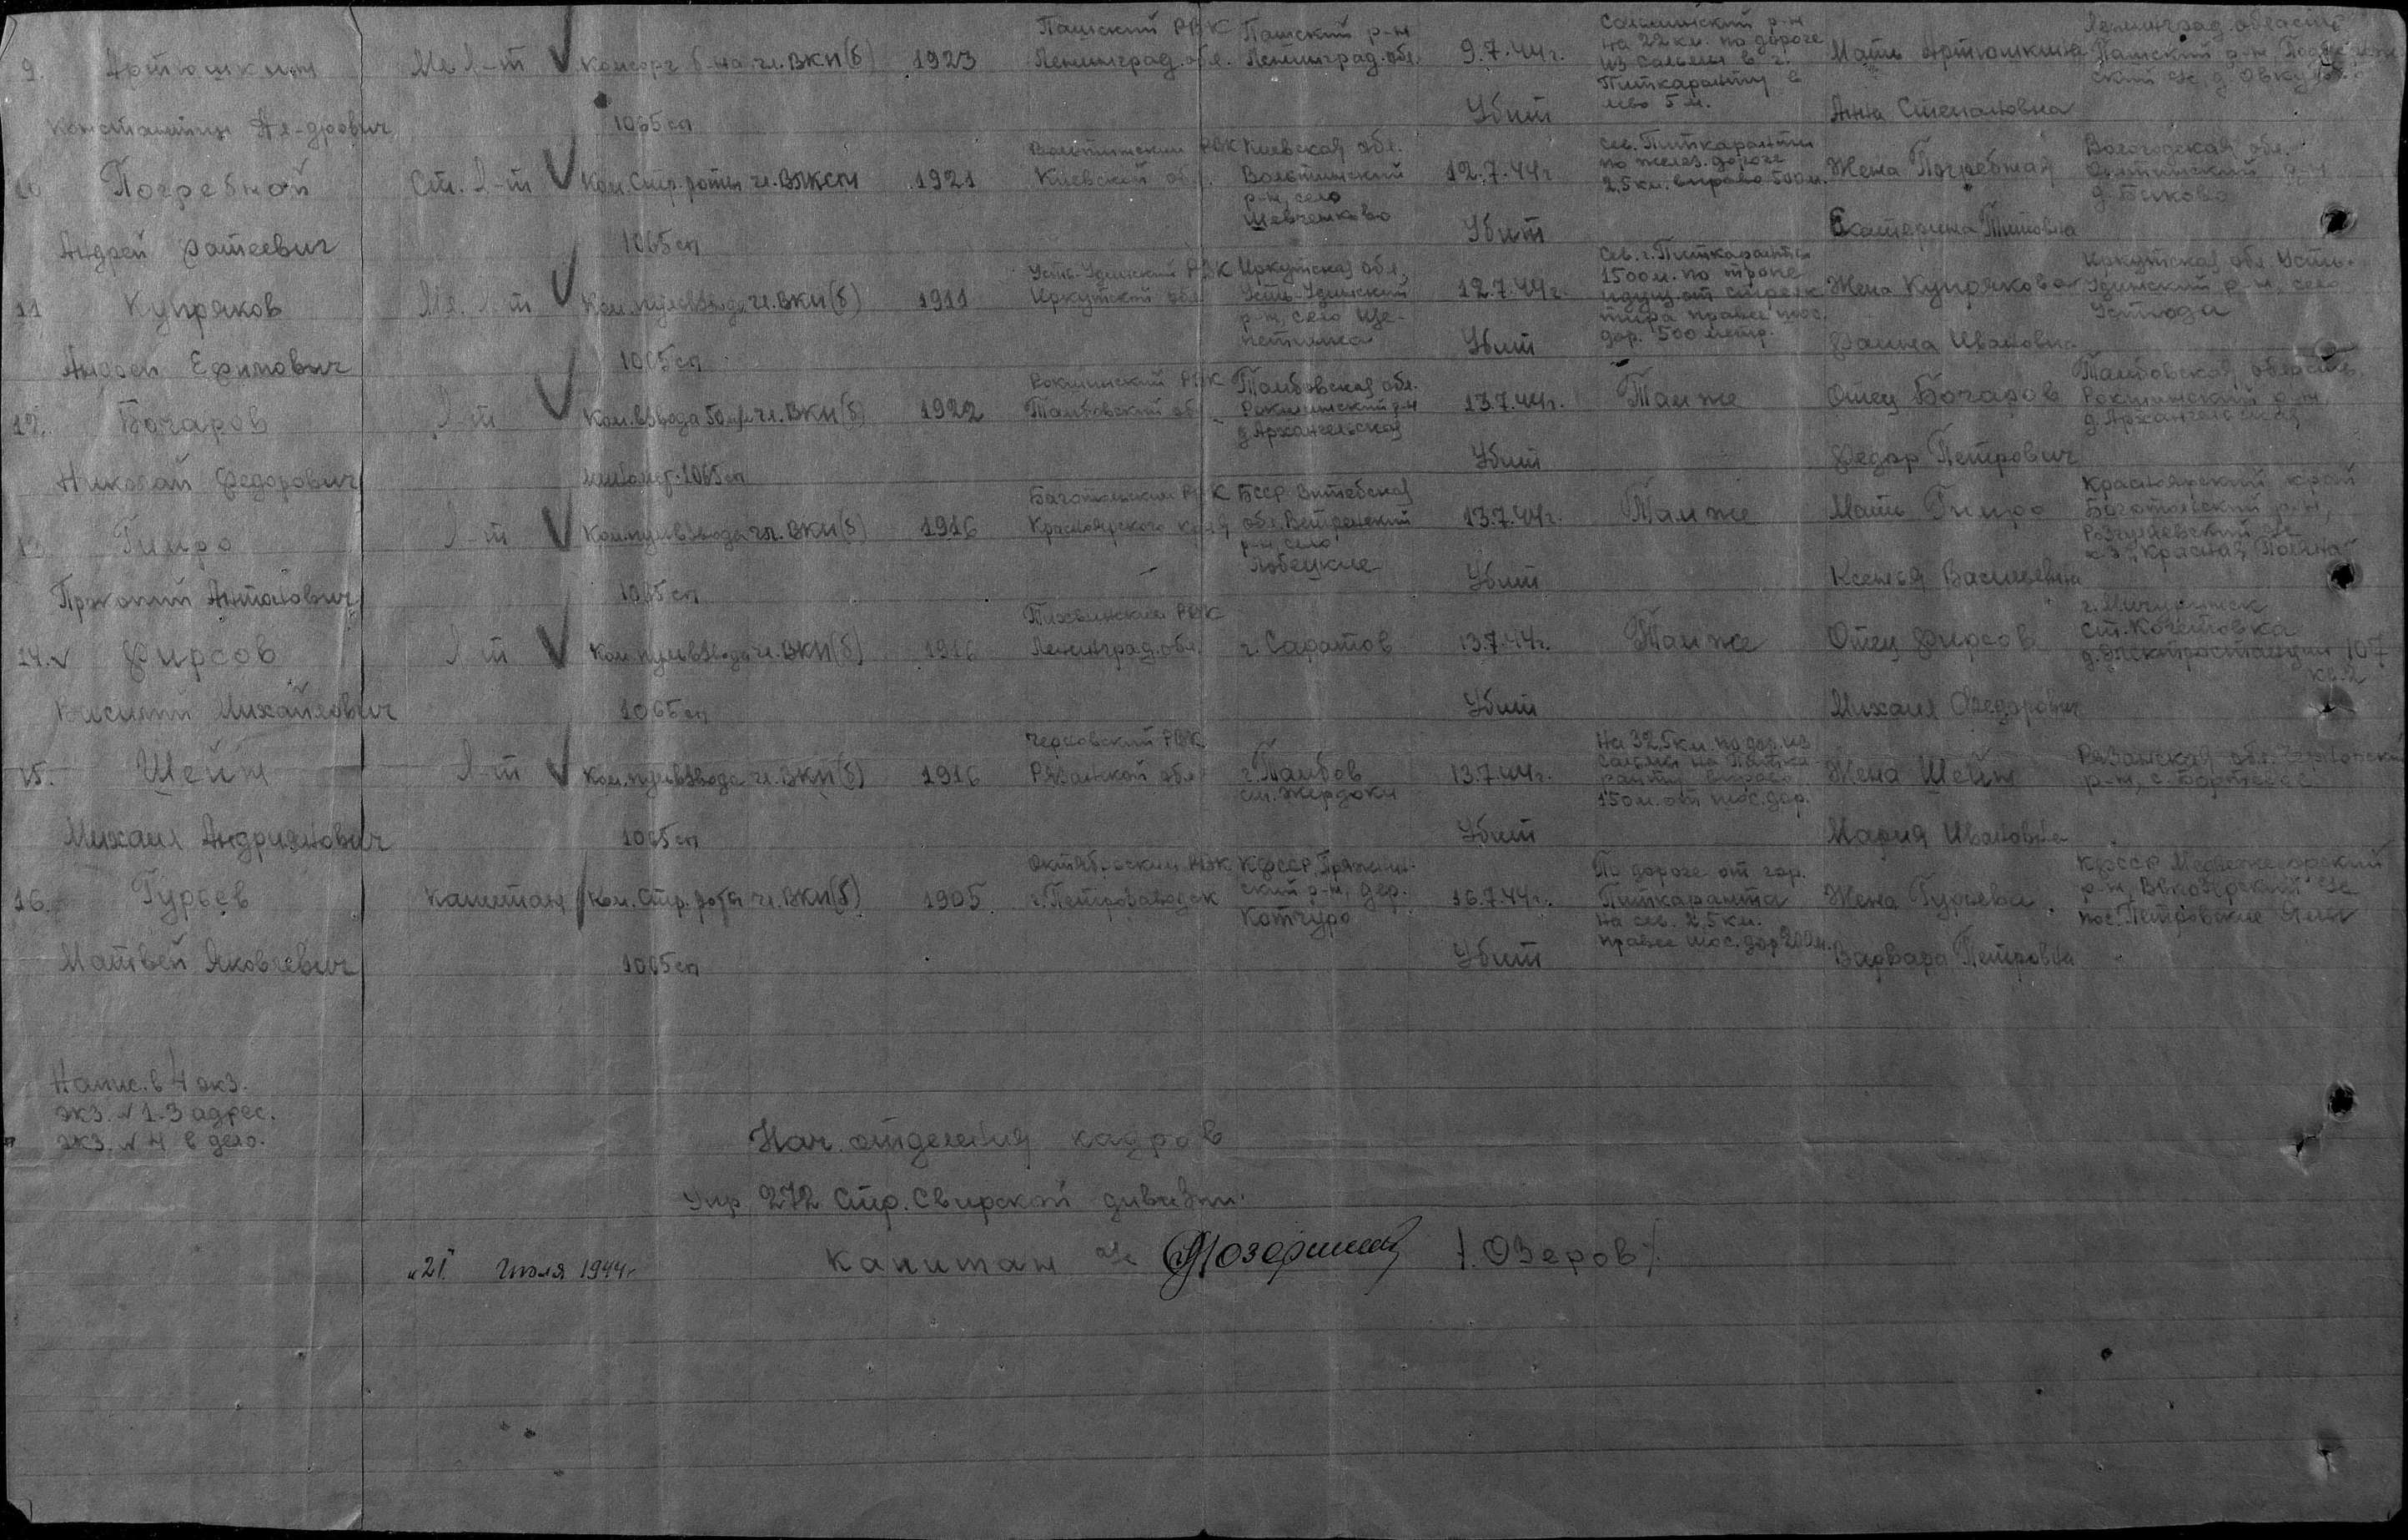 9. Артюшкин Мл. л-т Комсорг б-на чл. ВКП(б) 1923 Пашский РВК Ленинград. обл. Пашский р-н Ленинград. обл. 9.7.44г. Салминский р-н на 22 км. по дороге из Салми в г. Питкаранту влево 5 м. Мать Артюшкина Ленинград. область Пашский р-н д. Овку
Константин Ал-дрович 1065 сп Убит Анна Степановна
10 Погребной Ст. л-т Ком. Стр. роты чл. ВЛКСМ 1921 РВК Киевской обл. Киевская обл. р-н, село Шевченково 12.7.44г. Сев. Питкаранты по желез. дороге 2,5 км. вправо 500 м. Жена Погребная Вологодская обл. р-н д. Быково
Андрей Фатеевич 1065 сп Убит Екатерина Титовна
11 Купряков Мл. л-т Ком. пульвзвода чл. ВКП(б) 1911 Усть-Удинский РВК Иркутской обл. Иркутская обл. Усть-Удинский р-н, село 12.7.44г. Сев. г. Питкаранты 1500 м. по тропе идущ. от правее шос. дор. 500 метр. Жена Купрякова Иркутская обл. Усть-Удинский р-н, село
Андрей Ефимович 1065 сп Убит Ивановна
12. Бочаров Л-т Ком. взвода 50 м/м чл. ВКП(б) 1922 Рокшинский РВК Тамбовской обл. Тамбовская обл. Рокшинский р-н д. Архангельская 13.7.44г. Там же Отец Бочаров Тамбовская область, Рокшинский р-н, д. Архангельская
Николай Федорович 1065 сп Убит Федор Петрович
13 Гниро Л-т Ком. пульвзвода чл. ВКП(б) 1916 Боготольский РВК Красноярского края БССР Витебская обл. Ветринский р-н, село 13.7.44г. Там же Мать Гниро Красноярский край Боготольский р-н, к-з "Красная Поляна"
Прокопий Антонович 1065 сп Убит Ксенья Васильевна
14. Фирсов Л-т Ком. пульвзвода чл. ВКП(б) 1916 Тихвинский РВК Ленинград. обл. г. Саратов 13.7.44г. Там же Отец Фирсов г. Мичуринск ст. Кочетовка д. Электростанции 107 кв. 2
Василий Михайлович 1065 сп Убит Михаил Федорович
15. Шейн Л-т Ком. пульвзвода чл. ВКП(б) 1916 РВК Рязанской обл. г. Тамбов ст. Жердоки 13.7.44г. На 32,5 км. по дор. из Салми на Питкаранту вправо 150 м. от шос. дор. Жена Шейн Рязанская обл. р-н, с.
Михаил Андриянович 1065 сп Убит Мария Ивановна
16. Гурьев Капитан Ком. Стр. роты чл. ВКП(б) 1905 Октябрьский РВК г. Петрозаводск КФССР, Пряжинский р-н, дер. Котчуро 16.7.44г. По дороге от гор. Питкаранта на сев. 2,5 км. правее шос. дор 200 м. Жена Гурьева КФССР Медвежегорский р-н, пос. Петровские Ямы
Матвей Яковлевич 1065 сп Убит Варвара Петровна
Напис. в 4 экз.
экз. N 1-3 адрес.
экз. N 4 в дело.
Нач. отделения кадров
Упр. 272 Стр. Свирской дивизии.
"21" июля 1944г. Капитан /Озеров/